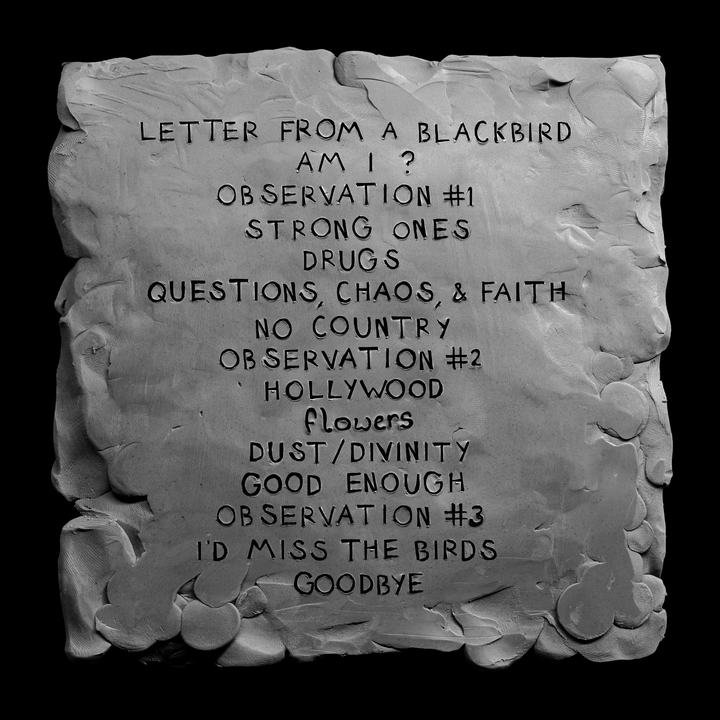 LETTER FROM A BLACKBIRD
AM I ?
OBSERVATION #1
STRONG ONES
DRUGS
QUESTIONS, CHAOS, & FAITH
NO COUNTRY
OBSERVATION #2
HOLLYWOOD
flowers
DUST/DIVINITY
GOOD ENOUGH
OBSERVATION #3
I'D MISS THE BIRDS
GOODBYE